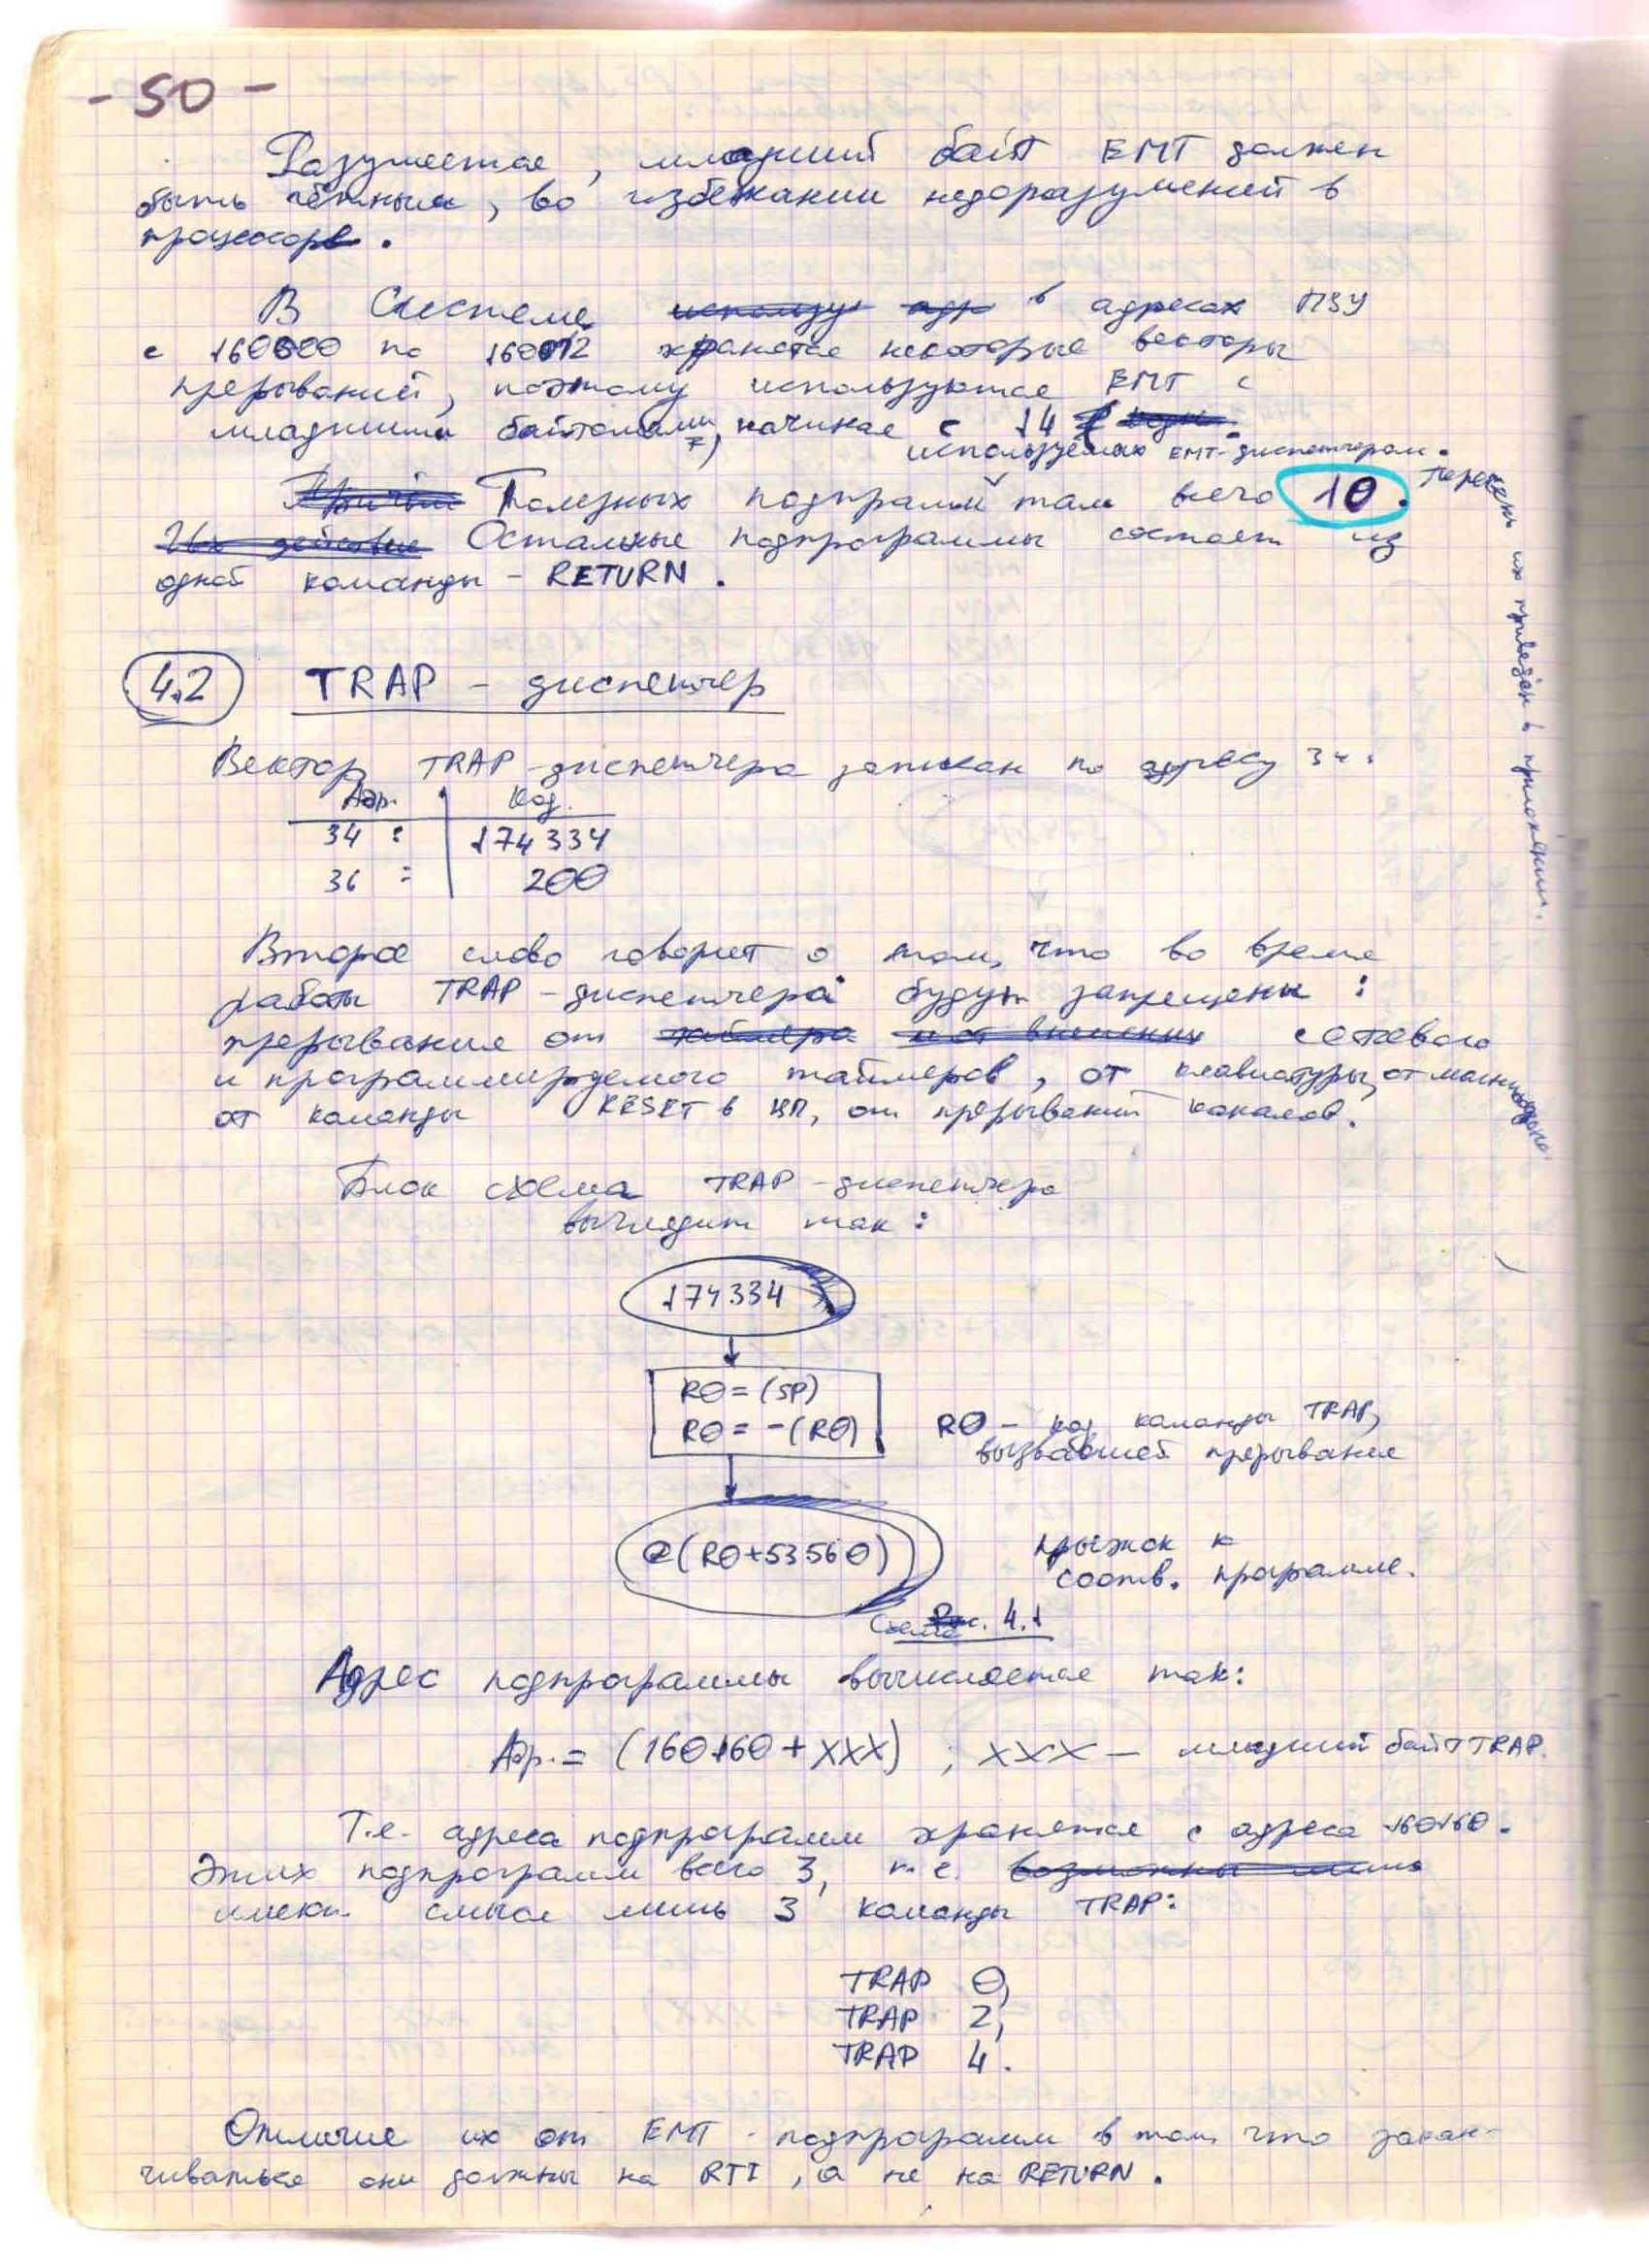 - 50 -
Разумеется, младший байт EMT должен
быть чётным, во избежании недоразумений в
процессоре.
В Системе использу адр в адресах ПЗУ
с 160000 по 160012 хранятся некоторые векторы
прерываний, поэтому используются EMT с
младшими байтами, начиная с 14
используемых EMT-диспетчером.
Причём Полезных подпрамм там всего 10. Перечень их приведён в приложении.
Их действие Остальные подпрограммы состоят из
одной команды - RETURN.
4.2 TRAP - диспетчер
Вектор TRAP-диспетчера записан по адресу 34:
Адр. Код.
34 : 174334
36 : 200
Второе слово говорит о том, что во время
работы TRAP-диспетчера будут запрещены :
прерывания от таймера и от внешних сетевого
и программируемого таймеров, от клавиатуры, от магнитофона
от команды RESET в ЦП, от прерываний каналов.
Блок схема TRAP-диспетчера
выглядит так :
174334
R0 = (SP)
R0 = -(R0)
R0 - код команды TRAP,
вызвавшей прерывание
@(R0+53560)
прыжок к
соотв. программе.
Схема Рис. 4.1
Адрес подпрограммы вычисляется так:
Адр. = (160160 + XXX) ; XXX — младший байт TRAP.
Т.е. адреса подпрограмм хранятся с адреса 160160.
Этих подпрограмм всего 3, т.е. возможны лишь
имеют смысл лишь 3 команды TRAP:
TRAP 0,
TRAP 2,
TRAP 4.
Отличие их от EMT-подпрограмм в том что закан-
чиваться они должны на RTI, а не на RETURN.